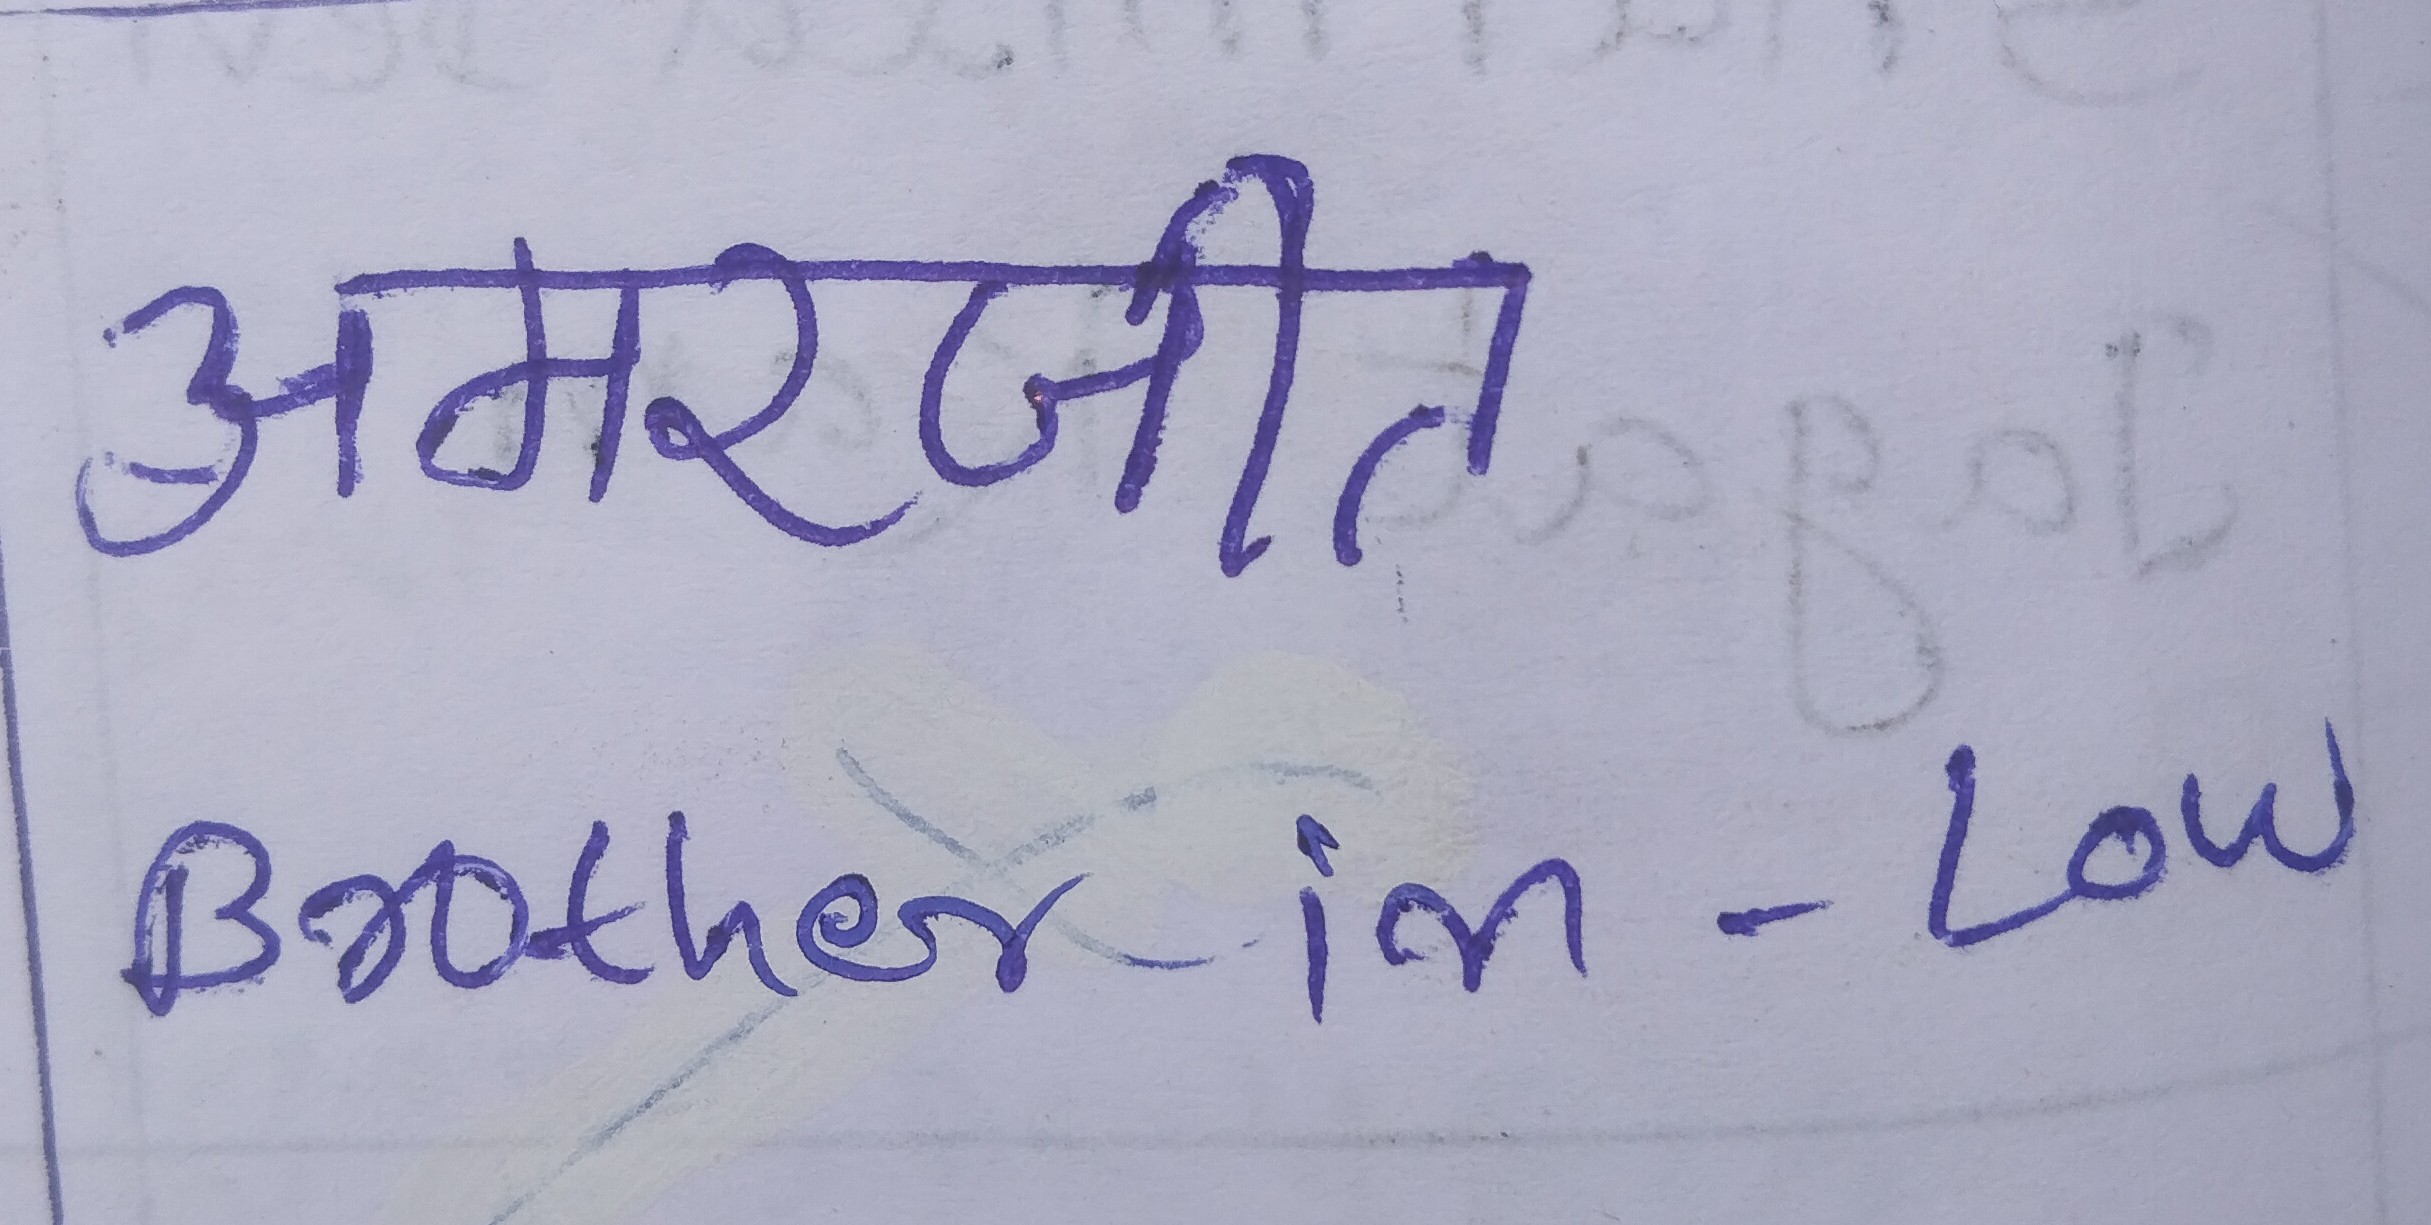 अमरजीत
Brother in - Low